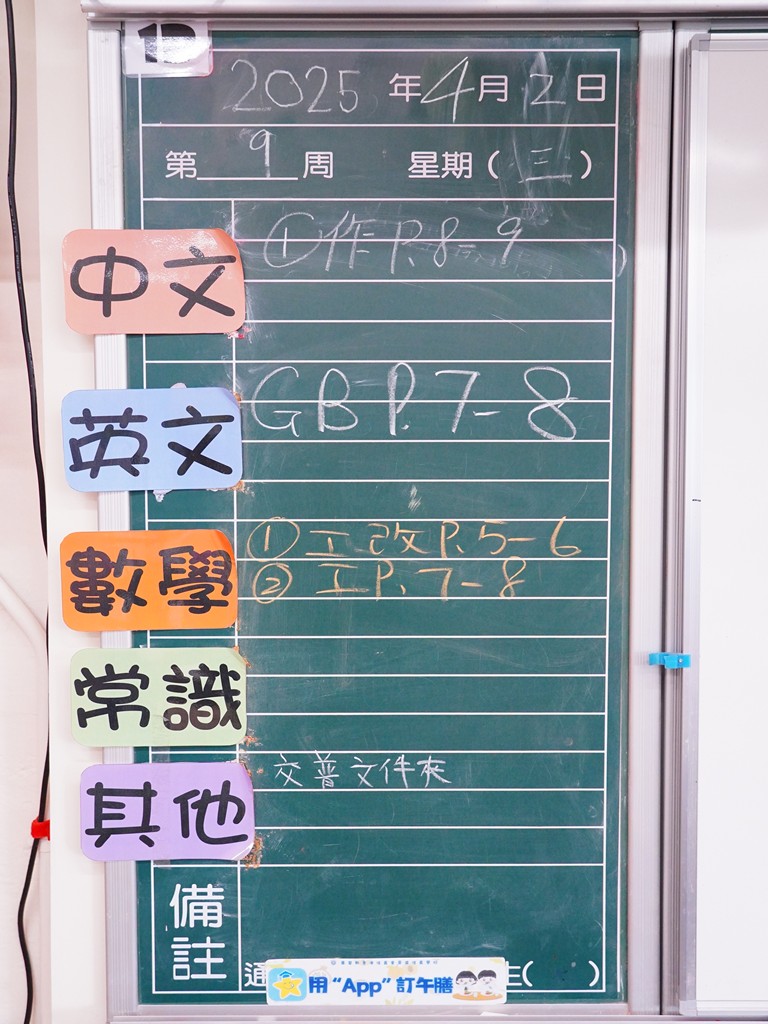 1D
2025 年 4 月 2 日
第 9 周 星期 ( 三 )
中文
① 作 P.8-9
英文
GB P.7-8
數學
① 工改 P.5-6
② 工 P.7-8
常識
其他
交普文件夾
備註
通
生( )
用 "App" 訂午膳